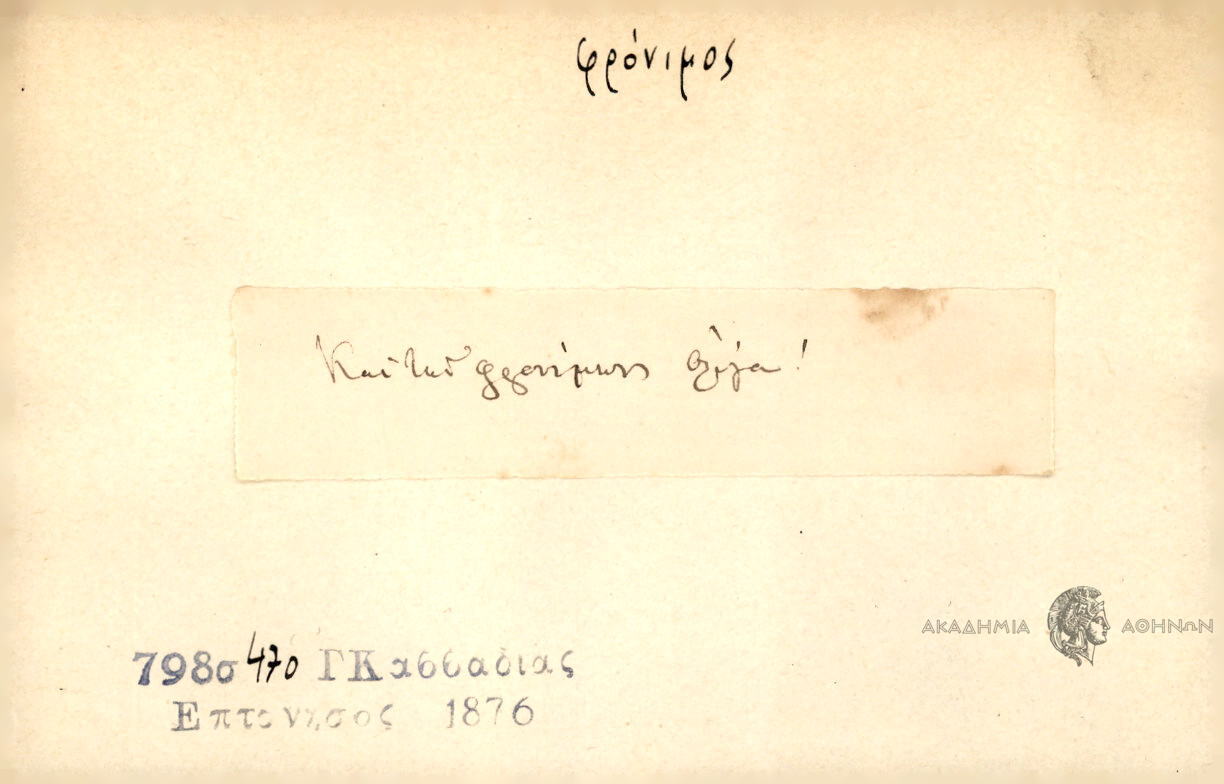 φρόνιμος
Καὶ τῶν φρονίμων ὀλίγα!
ΑΚΑΔΗΜΙΑ ΑΘΗΝΩΝ
798σ 470 ΓΚασσαδιας
Επτονησος 1876